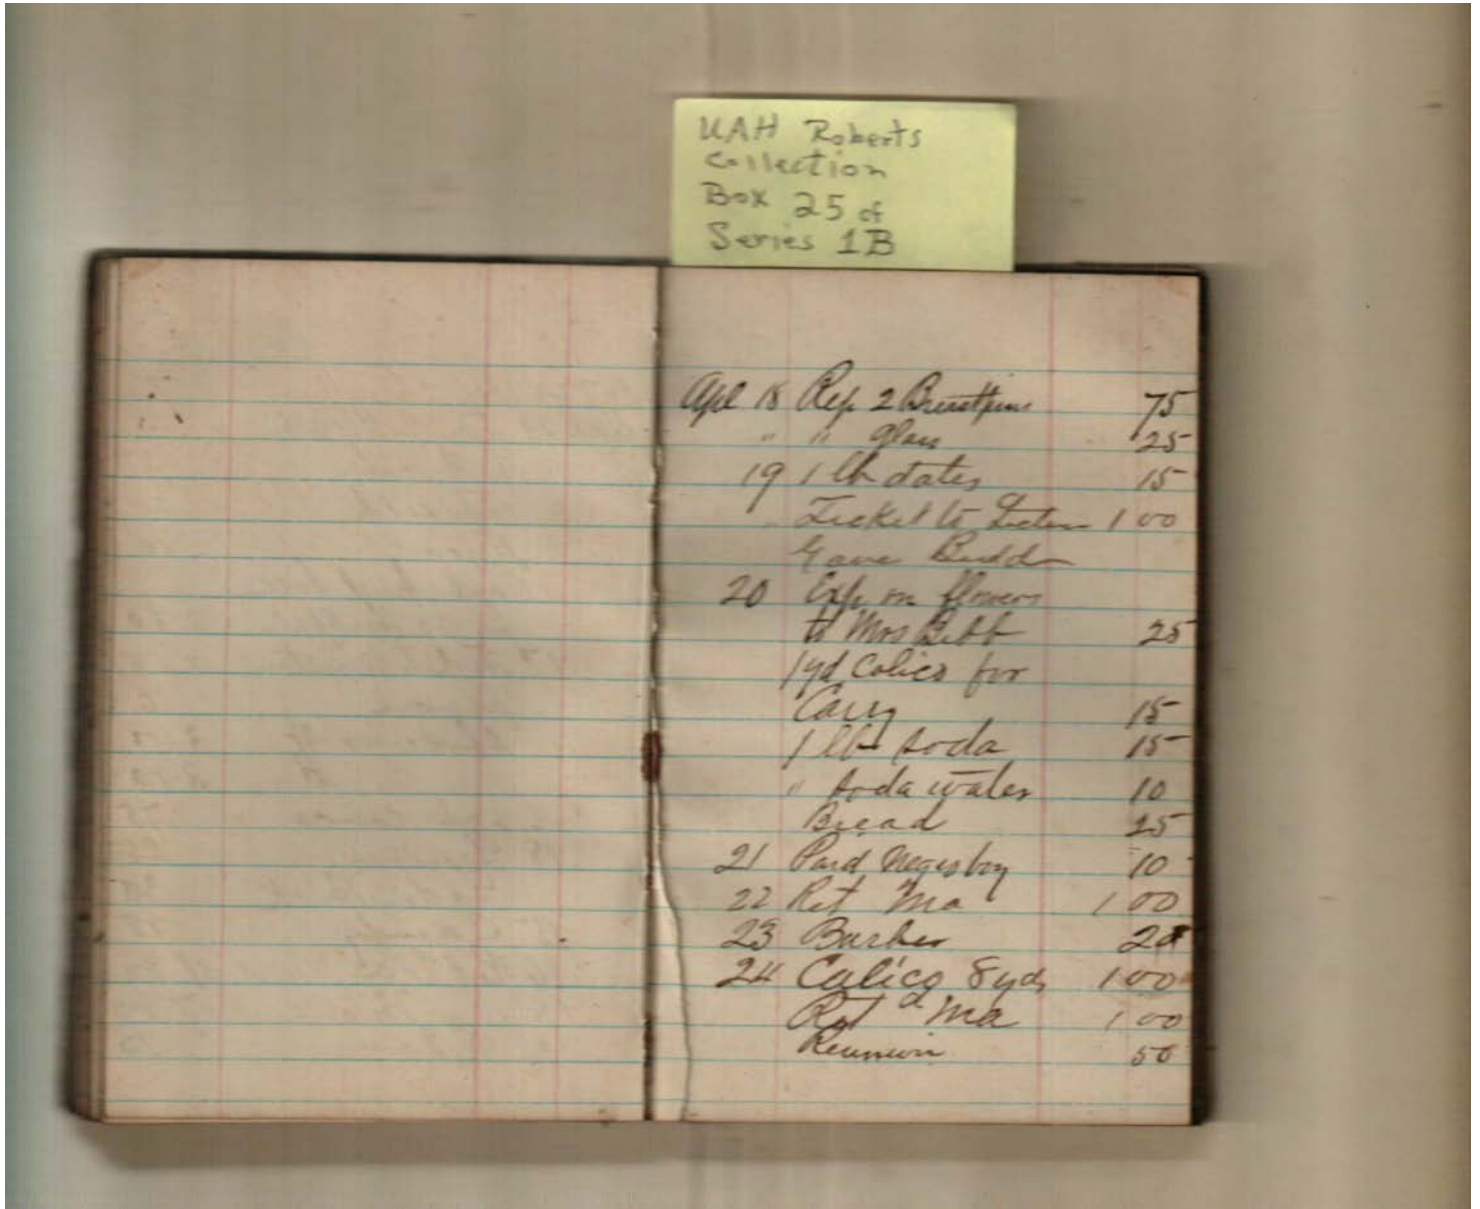 UAH Roberts
Collection
Box 25 of
Series 1B
Apl 18 Rep 2 Breastpins 75
" " Glass 25
19 1 lb dates 15
Ticket to 1 00
Gave Budd
20 Exp on flowers
to Mrs Bibb 25
1 yd Calico for
Carry 15
1 lb soda 15
" soda water 10
Bread 25
21 Paid Negro boy 10
22 Ret Ma 1 00
23 Barber 20
24 Calico 8 yds 1 00
Ret d Ma 1 00
Reunion 50